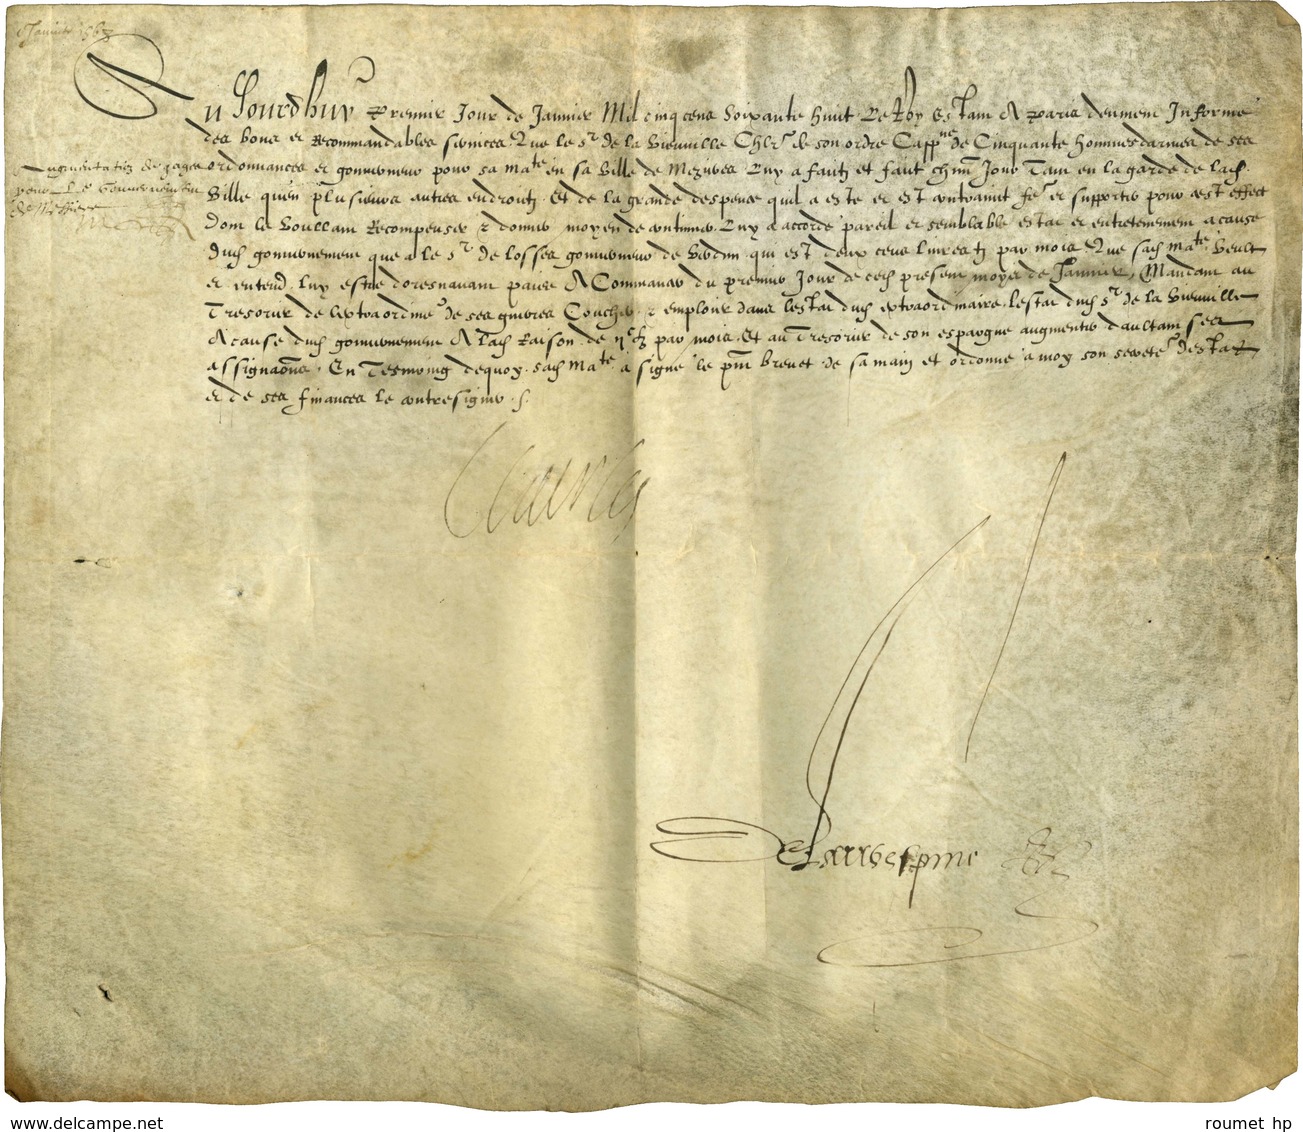 Janvier 1568
Au Jourdhuy Premier Jour de Janvier Mil cinq cens soixante huit Le Roy estant A Paris deuement Informé
des bons et Recommandables services Que le Sr de la Vieuville Chlr de son ordre Cappne de Cinquante hommes darmes de ses
ordonnances et gouverneur pour sa Mate en sa Ville de Mezieres Luy a faictz et faict chun Jour Tant en la garde de lad
Ville quen plusieurs autres endroictz Et de la grande despence quil a esté et est contrainct fe et supporter pour cest effect
Augmentation de gages
pour Le Gouvernement
de Mesieres
Dont le Voullant Recompenser & donner moyen de continuer Luy a accordé pareil et semblable estat et entretenement a cause
dud gouvernement que a le Sr de Losses gouverneur de Verdun qui est deux cens livres tz par mois Que sad Mate Veult
et entend Luy estre doresnavant payée A Commancer du premier Jour de ce present moys de Janvier, Mandant au
Tresorier de lextraordine de ses guerres Coucher & employer dans lestat dud extraordinaire lestat dud Sr de la Vieuville
A cause dud gouvernement A lad Raison de IIc tz par mois Et au Tresorier de son espargne augmenter daultant ses
assignaons. En Tesmoing dequoy sad Mate a signé le pnt brevet de sa main et ordonné a moy son secrete destat
et de ses finances le contresigner
Charles
De Laubespine
www.delcampe.net
roumet hp